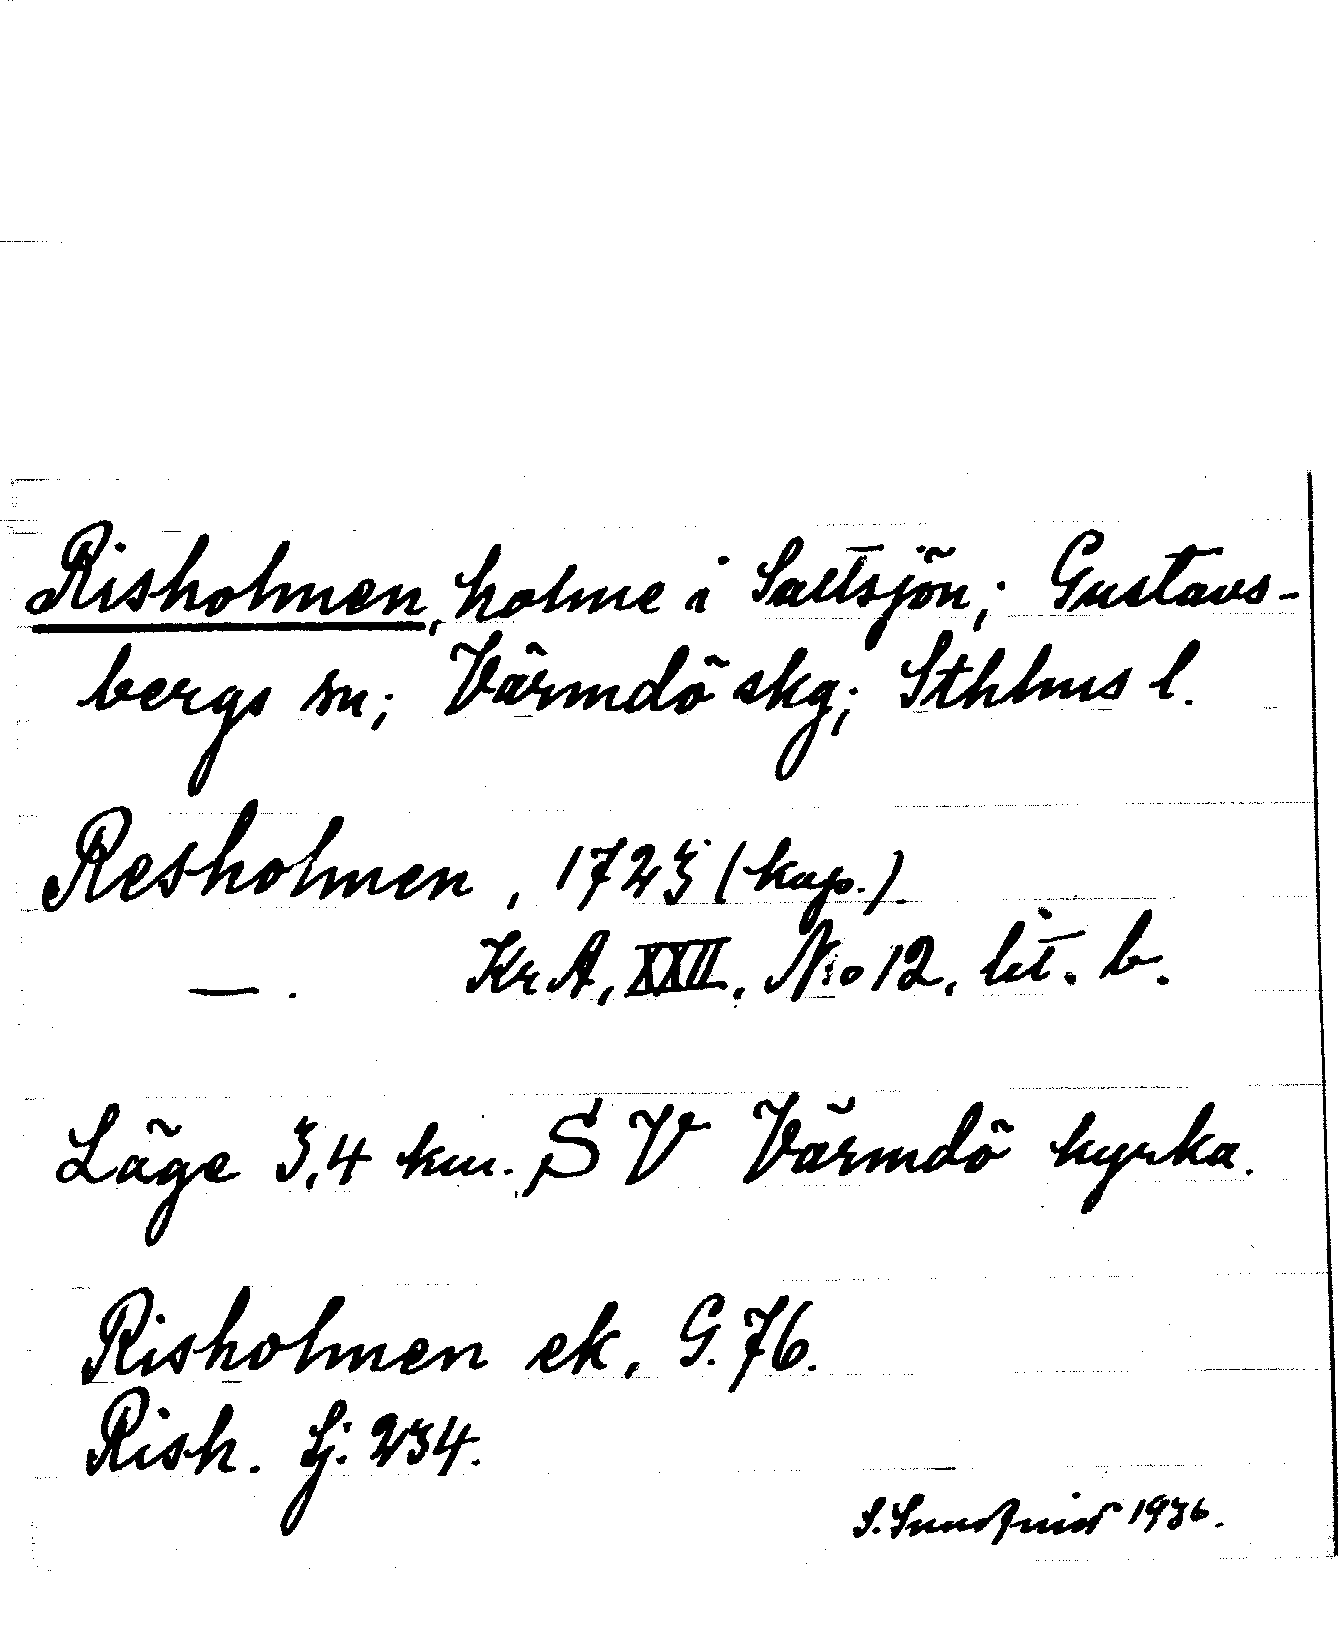 Risholmen, holme i Saltsjön; Gustavs-
bergs sn; Värmdö skg; Sthlms l.
Resholmen, 1723 (kop.)
—. Kr A, XXII, No 12, lit. b.
Läge 3,4 km. SV Värmdö kyrka.
Risholmen ek. G. 76.
Rish. Lj. 234.
S. 1936.